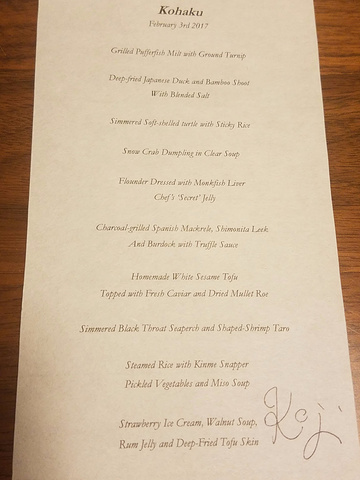 Kohaku
February 3rd 2017
Grilled Pufferfish Milt with Ground Turnip
Deep-fried Japanese Duck and Bamboo Shoot
With Blended Salt
Simmered Soft-shelled turtle with Sticky Rice
Snow Crab Dumpling in Clear Soup
Flounder Dressed with Monkfish Liver
Chef's 'Secret' Jelly
Charcoal-grilled Spanish Mackrele, Shimonita Leek
And Burdock with Truffle Sauce
Homemade White Sesame Tofu
Topped with Fresh Caviar and Dried Mullet Roe
Simmered Black Throat Seaperch and Shaped-Shrimp Taro
Steamed Rice with Kinme Snapper
Pickled Vegetables and Miso Soup
Strawberry Ice Cream, Walnut Soup,
Rum Jelly and Deep-Fried Tofu Skin
Koji